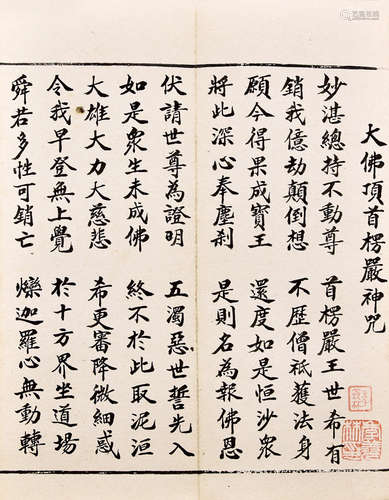 大佛頂首楞嚴神咒
妙湛總持不動尊 首楞嚴王世希有
銷我億劫顛倒想 不歷僧祇獲法身
願今得果成寶王 還度如是恒沙眾
將此深心奉塵剎 是則名為報佛恩
伏請世尊為證明 五濁惡世誓先入
如是眾生未成佛 終不於此取泥洹
大雄大力大慈悲 希更審降微細惑
令我早登無上覺 於十方界坐道場
舜若多性可銷亡 爍迦羅心無動轉